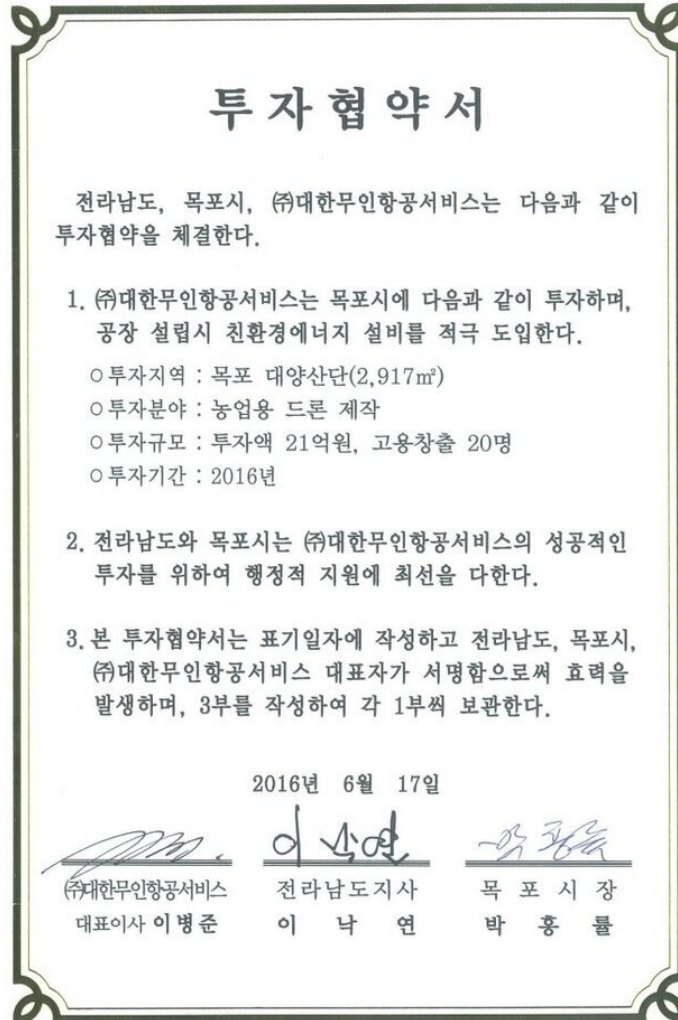 투자협약서
전라남도, 목포시, ㈜대한무인항공서비스는 다음과 같이
투자협약을 체결한다.
1. ㈜대한무인항공서비스는 목포시에 다음과 같이 투자하며,
공장 설립시 친환경에너지 설비를 적극 도입한다.
○투자지역 : 목포 대양산단(2,917㎡)
○투자분야 : 농업용 드론 제작
○투자규모 : 투자액 21억원, 고용창출 20명
○투자기간 : 2016년
2. 전라남도와 목포시는 ㈜대한무인항공서비스의 성공적인
투자를 위하여 행정적 지원에 최선을 다한다.
3. 본 투자협약서는 표기일자에 작성하고 전라남도, 목포시,
㈜대한무인항공서비스 대표자가 서명함으로써 효력을
발생하며, 3부를 작성하여 각 1부씩 보관한다.
2016년 6월 17일
이낙연
㈜대한무인항공서비스 전라남도지사 목 포 시 장
대표이사 이병준 이 낙 연 박 홍 률